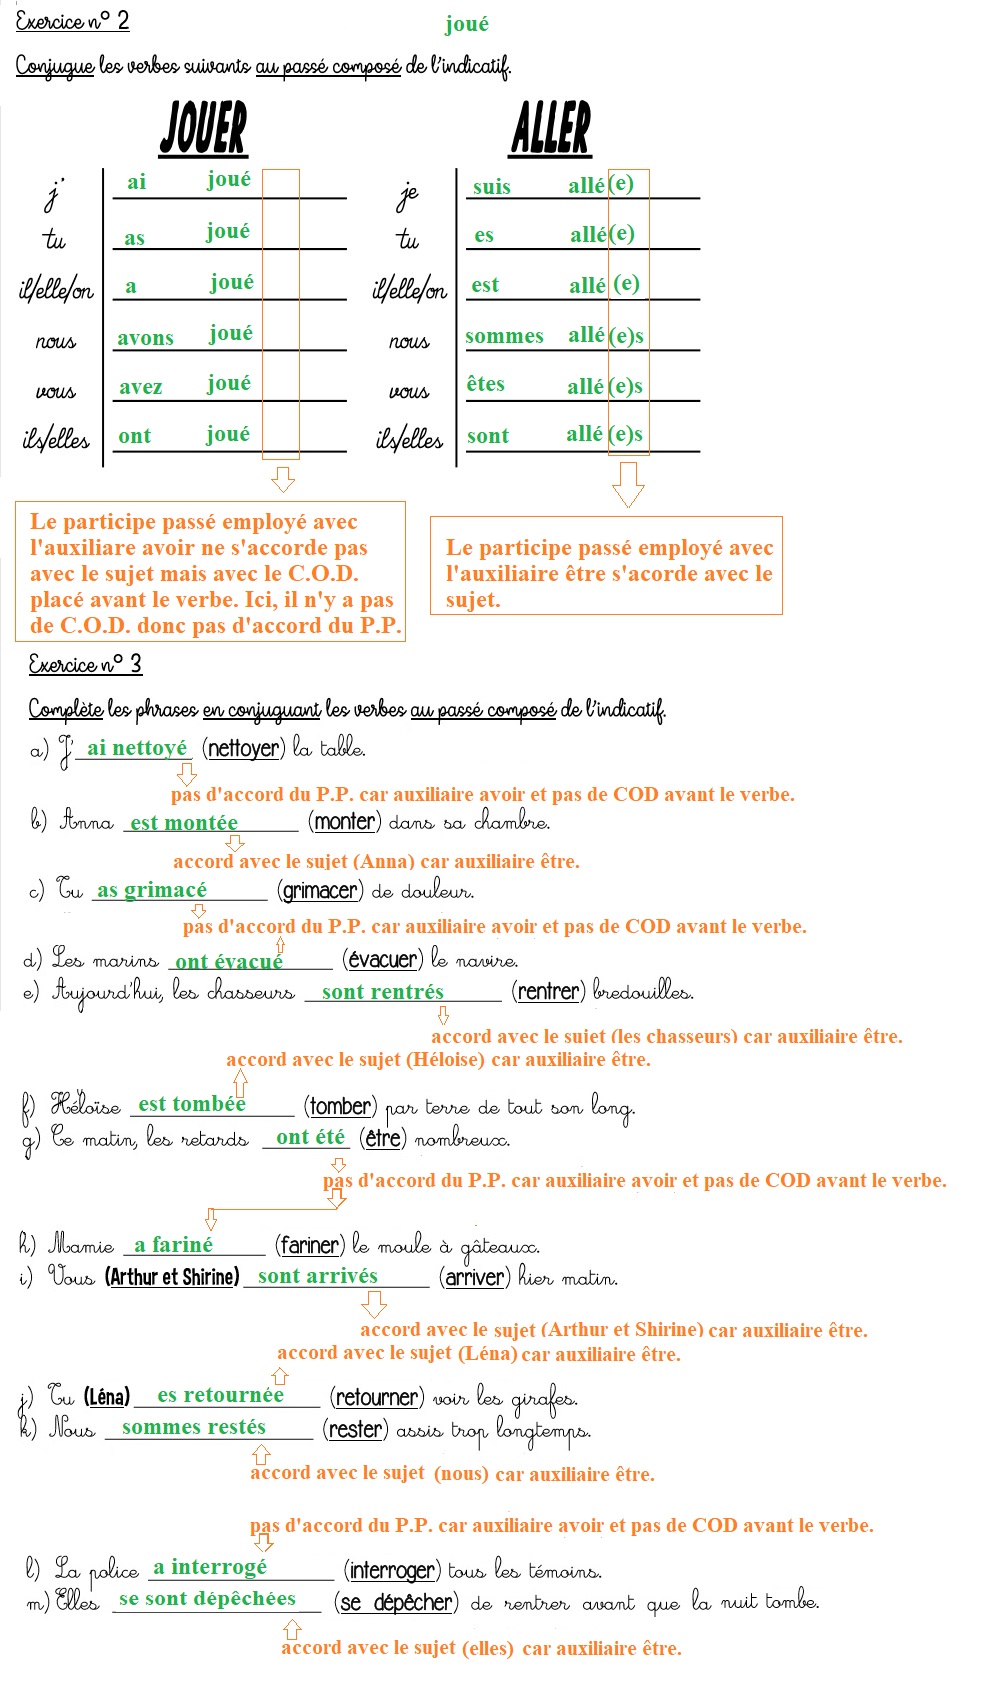 Exercice n° 2
joué
Conjugue les verbes suivants au passé composé de l'indicatif.
JOUER
j' ai joué
tu as joué
il/elle/on a joué
nous avons joué
vous avez joué
ils/elles ont joué
ALLER
je suis allé(e)
tu es allé(e)
il/elle/on est allé (e)
nous sommes allé(e)s
vous êtes allé(e)s
ils/elles sont allé(e)s
Le participe passé employé avec
l'auxiliare avoir ne s'accorde pas
avec le sujet mais avec le C.O.D.
placé avant le verbe. Ici, il n'y a pas
de C.O.D. donc pas d'accord du P.P.
Le participe passé employé avec
l'auxiliaire être s'acorde avec le
sujet.
Exercice n° 3
Complète les phrases en conjuguant les verbes au passé composé de l'indicatif.
a) J' ai nettoyé (nettoyer) la table.
pas d'accord du P.P. car auxiliaire avoir et pas de COD avant le verbe.
b) Anna est montée (monter) dans sa chambre.
accord avec le sujet (Anna) car auxiliaire être.
c) Tu as grimacé (grimacer) de douleur.
pas d'accord du P.P. car auxiliaire avoir et pas de COD avant le verbe.
d) Les marins ont évacué (évacuer) le navire.
e) Aujourd'hui, les chasseurs sont rentrés (rentrer) bredouilles.
accord avec le sujet (les chasseurs) car auxiliaire être.
accord avec le sujet (Héloise) car auxiliaire être.
f) Héloïse est tombée (tomber) par terre de tout son long.
g) Ce matin, les retards ont été (être) nombreux.
pas d'accord du P.P. car auxiliaire avoir et pas de COD avant le verbe.
h) Mamie a fariné (fariner) le moule à gâteaux.
i) Vous (Arthur et Shirine) sont arrivés (arriver) hier matin.
accord avec le sujet (Arthur et Shirine) car auxiliaire être.
accord avec le sujet (Léna) car auxiliaire être.
j) Tu (Léna) es retournée (retourner) voir les girafes.
k) Nous sommes restés (rester) assis trop longtemps.
accord avec le sujet (nous) car auxiliaire être.
pas d'accord du P.P. car auxiliaire avoir et pas de COD avant le verbe.
l) La police a interrogé (interroger) tous les témoins.
m) Elles se sont dépêchées (se dépêcher) de rentrer avant que la nuit tombe.
accord avec le sujet (elles) car auxiliaire être.